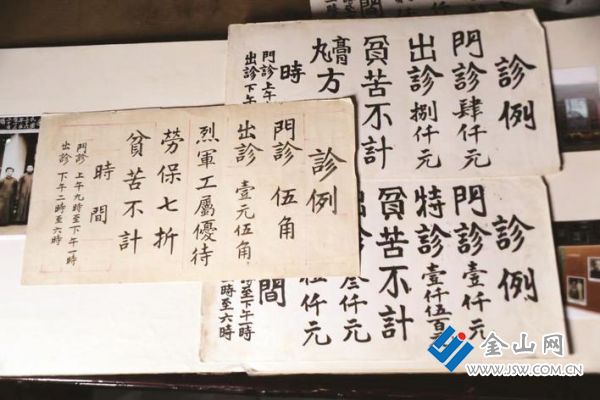 診例
門診肆仟元
出診捌仟元
貧苦不計
膏
丸方
時
門診上午
出診下午
診例
門診 伍角
出診 壹元伍角
烈軍工屬優待
勞保七折
貧苦不計
時間
門診 上午九時至下午一時
出診 下午二時至六時
診例
門診壹仟元
特診壹仟伍百
貧苦不計
仟元
仟元
間
時至六時
金山网
WWW.JSW.COM.CN